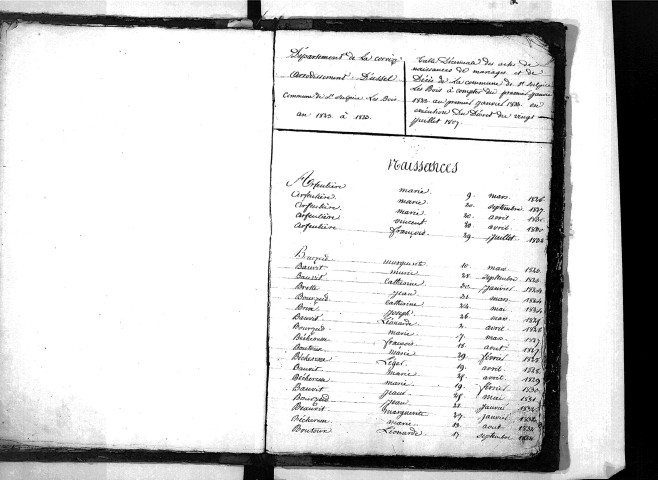 Département de La Corrèze
arrondissement D'ussel
Commune de St Sulpice Les Bois
an 1823 à 1833.
Table Décennale des actes de
naissances de mariages et de
Décès de La commune de St Sulpice
Les Bois à compter du premier janvier
1823 au premier janvier 1833. en
exécution Du Décret du vingt
juillet 1807.
Naissances
Arfeuillère marie 9 mars 1826
arfeuillère marie septembre 1827
arfeuillère marie 20 avril
arfeuillère vincent avril 1830
arfeuillère françois 29 juillet
marguerite 10 mars
Bauvit marie 28 septembre
Bauvit catherine janvier 1824
jean mars 1824
Bourzed catherine 24 mai 1824
joseph 26 mars
Bauvit Léonarde 2 avril
Bourzed marie 7 mars 1827
Bécheresse françois 18 août 1827
Boutoux marie 29 février 1828
Bécheresse Léger 19 avril 1828
Bauvit marie 25 avril 1829
Bécheresse marie 19 février 1830
Bauvit jean 28 mai 1831
Bourzed jean janvier 1832
Beauvit marguerite 27 janvier 1832
Bécheresse marie août 1832
Boutoux Léonarde 17 septembre 1832